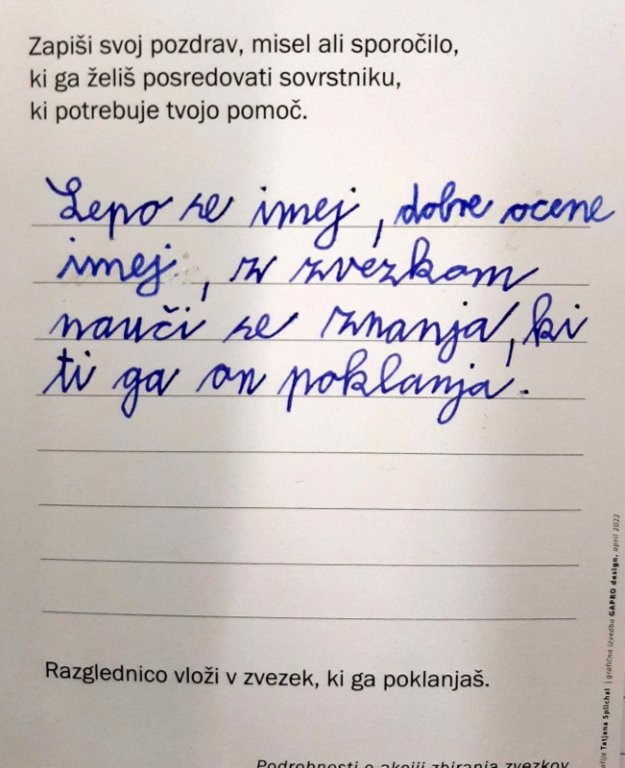 Zapiši svoj pozdrav, misel ali sporočilo,
ki ga želiš posredovati sovrstniku,
ki potrebuje tvojo pomoč.
Lepo se imej, dobre ocene
imej, z zvezkom
nauči se znanja, ki
ti ga on poklanja.
Razglednico vloži v zvezek, ki ga poklanjaš.
Podrobnosti o akciji zbiranja zvezkov
Tatjana Splichal | grafična izvedba GAPRO design, april 2022